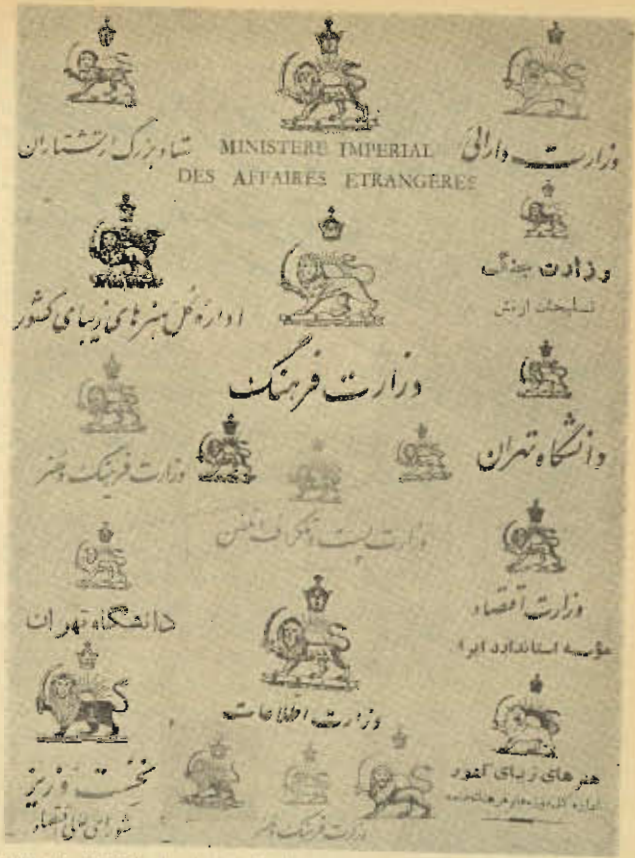 وزارت دارائی
MINISTERE IMPERIAL
DES AFFAIRES ETRANGERES
ستاد بزرگ ارتشتاران
وزارت جنگ
تسلیحات ارتش
اداره کل هنرهای زیبای کشور
وزارت فرهنگ
دانشگاه تهران
وزارت فرهنگ و هنر
وزارت پست و تلگراف و تلفن
وزارت اقتصاد
مؤسسه استاندارد ایران
دانشگاه تهران
وزارت اطلاعات
هنرهای زیبای کشور
نخست وزیر
شورای عالی اقتصاد
وزارت فرهنگ و هنر